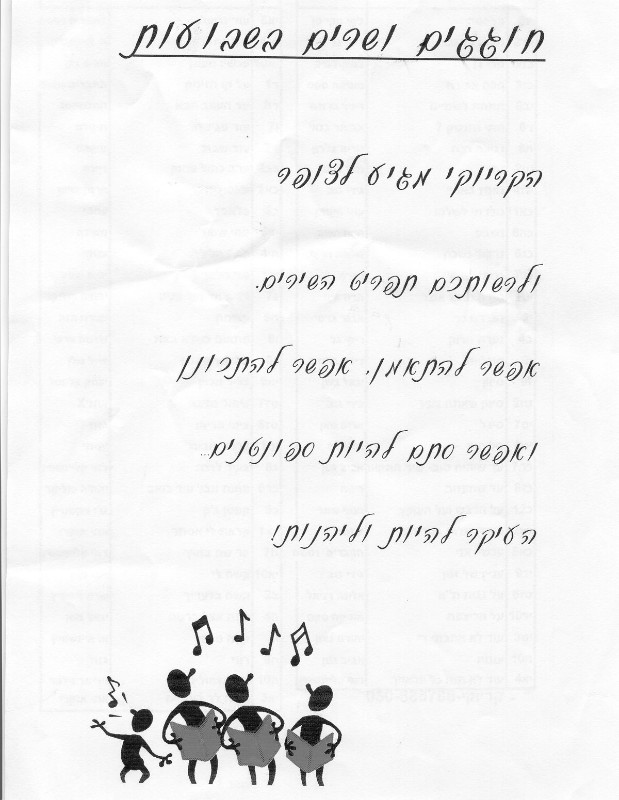 חוגגים ושרים בשבועות
הקריוקי מגיע לצופר
ולרשותכם תפריט השירים.
אפשר להתאמן, אפשר להתכונן
ואפשר סתם להיות ספונטנים...
העיקר להיות וליהנות!